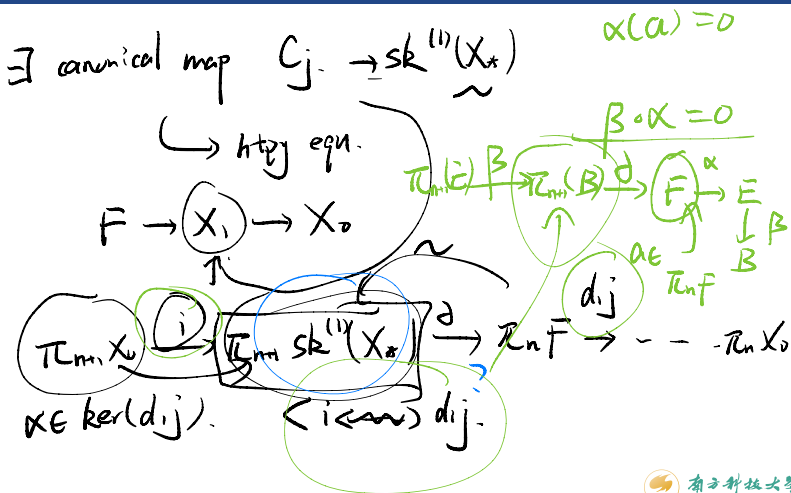 ∃ canonical map Cj. → sk⁽¹⁾(X_*)
α(a)=0
↳ htpy equ.
β∘α=0
π_{n+1}(E) β→ π_{n+1}(B) ∂→ F α→ E
↓ β
B
a∈ π_n F
F → X₁ → X₀
d₁j
π_{n+1} X₀ i→ π_{n+1} sk⁽¹⁾(X_*) ∂→ π_n F → --- π_n X₀
α∈ ker(d₁j). d₁j.
南方科技大学